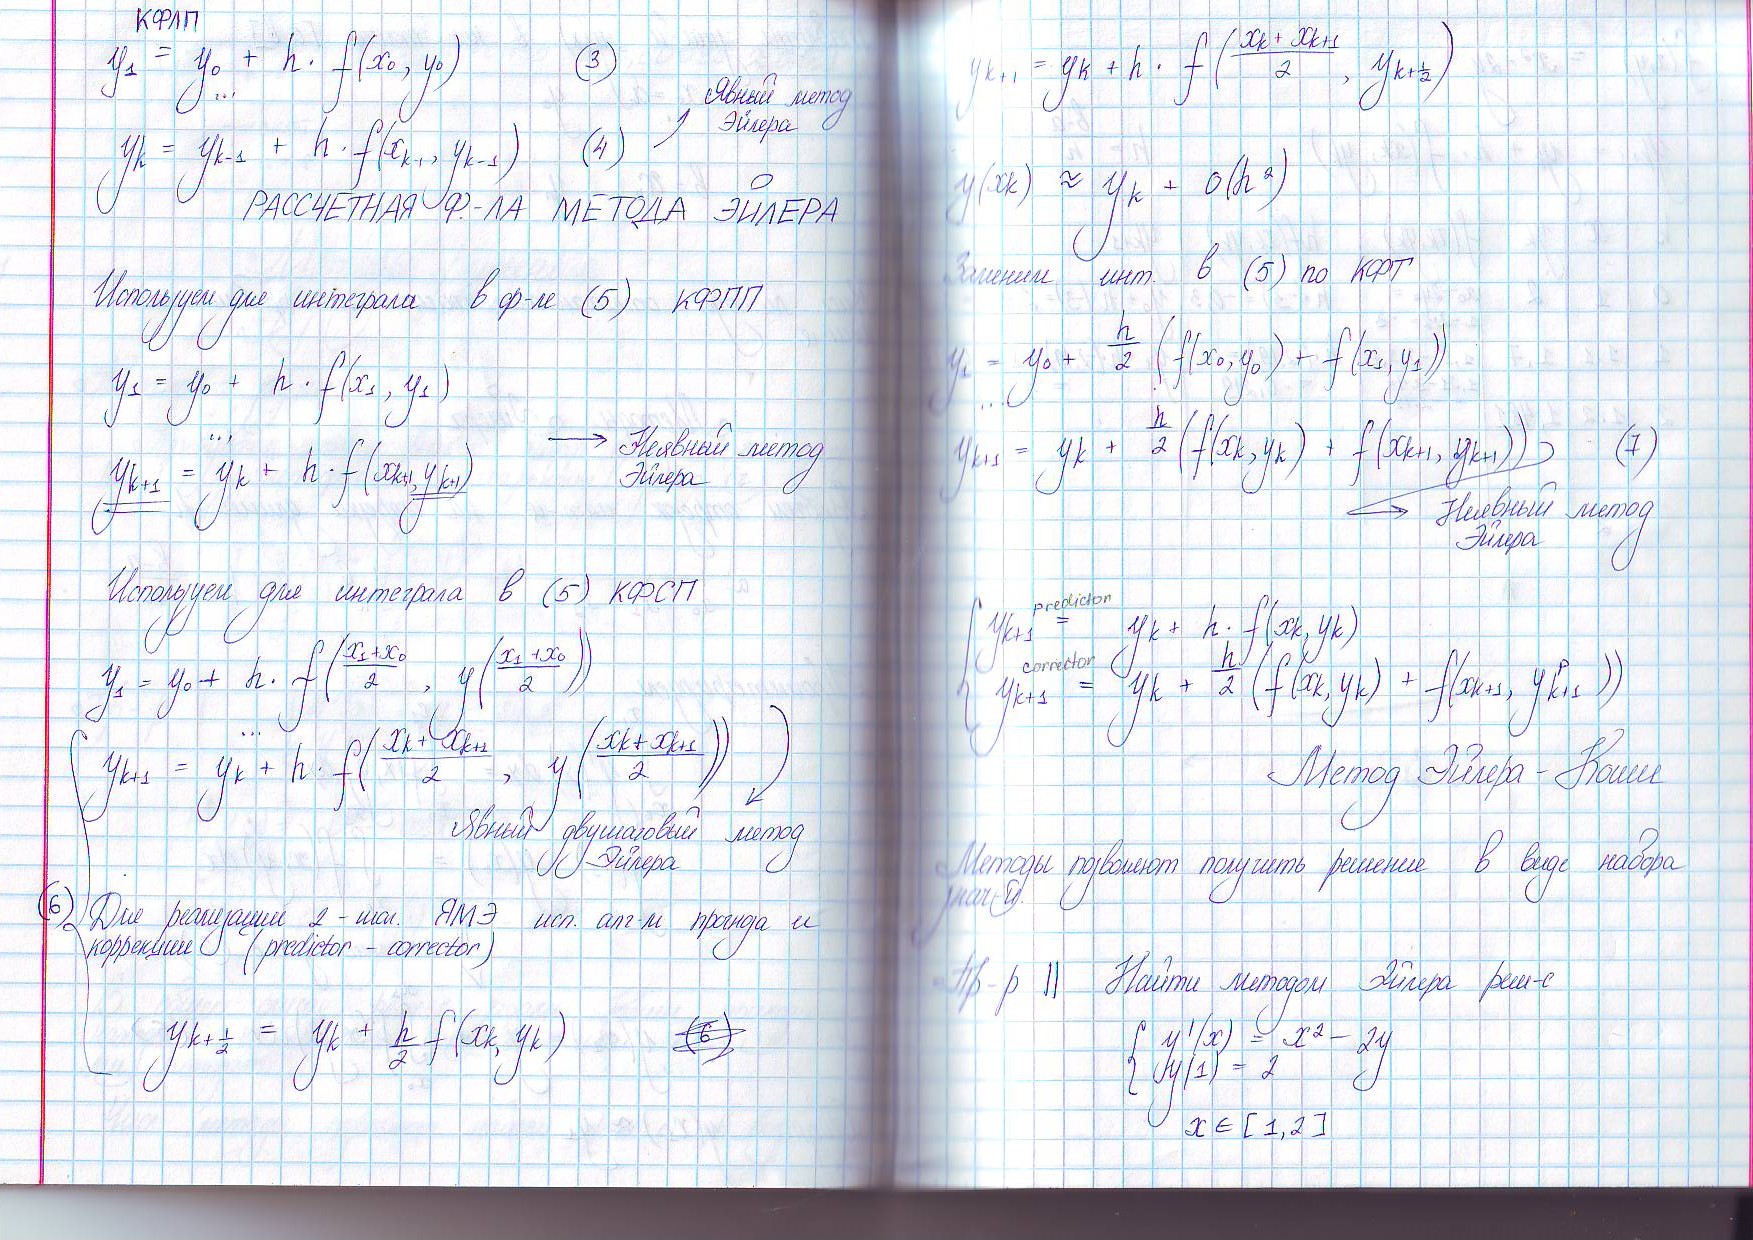 КФЛП
y₁ = y₀ + h · f(x₀, y₀) (3)
...
Явный метод
Эйлера
yₖ = yₖ₋₁ + h · f(xₖ₋₁, yₖ₋₁) (4)
РАССЧЕТНАЯ Ф-ЛА МЕТОДА ЭЙЛЕРА
Используем для интеграла в ф-ле (5) КФПП
y₁ = y₀ + h · f(x₁, y₁)
...
yₖ₊₁ = yₖ + h · f(xₖ₊₁, yₖ₊₁) → Неявный метод
Эйлера
Используем для интеграла в (5) КФСП
y₁ = y₀ + h · f((x₁+x₀)/2, y((x₁+x₀)/2))
...
yₖ₊₁ = yₖ + h · f((xₖ+xₖ₊₁)/2, y((xₖ+xₖ₊₁)/2))
Явный двушаговый метод
Эйлера
(6) Для реализации 2-шаг. ЯМЭ исп. алг-м прогноза и
коррекции (predictor - corrector)
y_{k+1/2} = yₖ + h/2 f(xₖ, yₖ) (6)
yₖ₊₁ = yₖ + h · f((xₖ+xₖ₊₁)/2, y_{k+1/2})
y(xₖ) ≈ yₖ + O(h²)
Заменим инт. в (5) по КФТ
y₁ = y₀ + h/2 (f(x₀, y₀) + f(x₁, y₁))
...
yₖ₊₁ = yₖ + h/2 (f(xₖ, yₖ) + f(xₖ₊₁, yₖ₊₁)) (7)
→ Неявный метод
Эйлера
yₖ₊₁ predictor = yₖ + h · f(xₖ, yₖ)
yₖ₊₁ corrector = yₖ + h/2 (f(xₖ, yₖ) + f(xₖ₊₁, yᵖₖ₊₁))
Метод Эйлера - Коши
Методы позволяют получить решение в виде набора
знач-й.
Пр-р || Найти методом Эйлера реш-е
{ y'(x) = x² - 2y
y(1) = 2
x ∈ [1, 2]